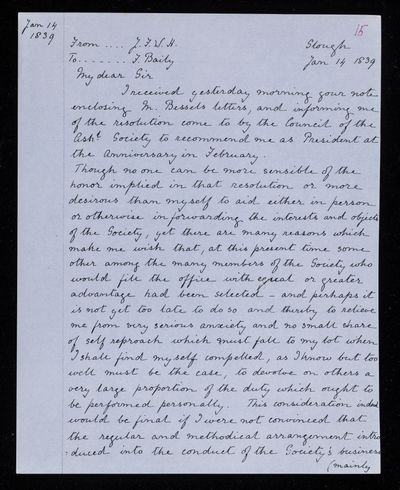 Jan 14
1839
15
From .... J. F. W. H. Slough
To....... F. Baily Jan 14 1839
My dear Sir
I received yesterday morning your note
enclosing M. Bessels letters, and informing me
of the resolution come to by the Council of the
Ast.l Society to recommend me as President at
the Anniversary in February.
Though no one can be more sensible of the
honor implied in that resolution or more
desirous than myself to aid either in person
or otherwise in forwarding the interests and objects
of the Society, yet there are many reasons which
make me wish that, at this present time some
other among the many members of the Society who
would fill the office with equal or greater
advantage had been selected - and perhaps it
is not yet too late to do so and thereby to relieve
me from very serious anxiety and no small share
of self reproach which must fall to my lot when
I shall find myself compelled, as I know but too
well must be the case, to devolve on others a
very large proportion of the duty which ought to
be performed personally. This consideration indeed
would be final if I were not convinced that
the regular and methodical arrangement intro
:duced into the conduct of the Society's business
(mainly